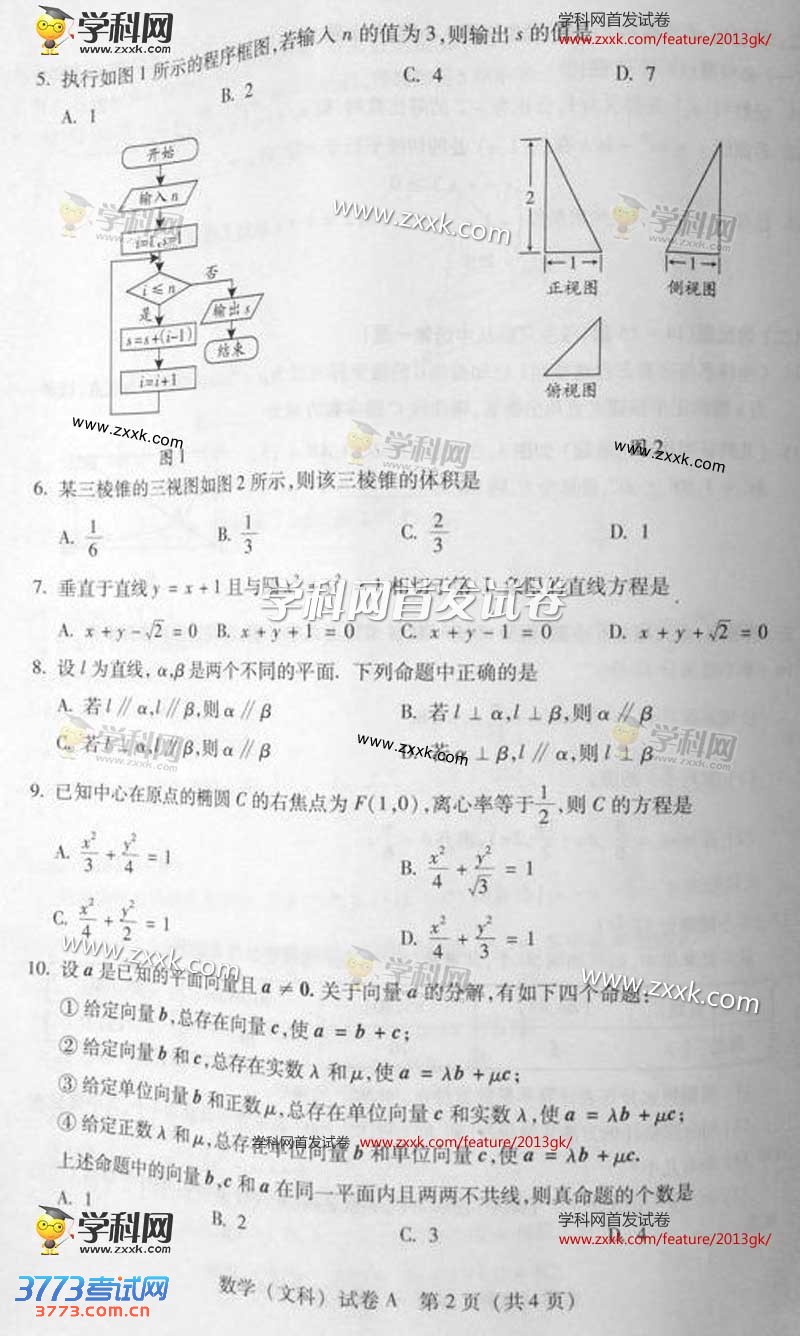 学科网
www.zxxk.com
学科网首发试卷
www.zxxk.com/feature/2013gk/
5. 执行如图1所示的程序框图,若输入 n 的值为3,则输出 s 的值是
A. 1 B. 2 C. 4 D. 7
开始
输入 n
i=1, s=1
i ≤ n
否
是
输出 s
s=s+(i-1)
结束
i=i+1
图1
2
1
正视图
1
侧视图
俯视图
图2
学科网
www.zxxk.com
www.zxxk.com
学科网
www.zxxk.com
www.zxxk.com
学科网
www.zxxk.com
www.zxxk.com
6. 某三棱锥的三视图如图2所示,则该三棱锥的体积是
A. 1/6 B. 1/3 C. 2/3 D. 1
7. 垂直于直线 y = x + 1 且与圆 相切于第 的直线方程是
学科网首发试卷
A. x + y - √2 = 0 B. x + y + 1 = 0 C. x + y - 1 = 0 D. x + y + √2 = 0
8. 设 l 为直线, α,β 是两个不同的平面. 下列命题中正确的是
A. 若 l // α, l // β, 则 α // β B. 若 l ⊥ α, l ⊥ β, 则 α // β
C. 若 l α, l // β, 则 α // β D. 若 α ⊥ β, l // α, 则 l ⊥ β
学科网
www.zxxk.com
www.zxxk.com
学科网
www.zxxk.com
9. 已知中心在原点的椭圆 C 的右焦点为 F(1,0), 离心率等于 1/2, 则 C 的方程是
A. x²/3 + y²/4 = 1 B. x²/4 + y²/√3 = 1
C. x²/4 + y²/2 = 1 D. x²/4 + y²/3 = 1
www.zxxk.com
学科网
www.zxxk.com
www.zxxk.com
10. 设 a 是已知的平面向量且 a ≠ 0. 关于向量 a 的分解,有如下四个命题:
① 给定向量 b, 总存在向量 c, 使 a = b + c;
② 给定向量 b 和 c, 总存在实数 λ 和 μ, 使 a = λb + μc;
③ 给定单位向量 b 和正数 μ, 总存在单位向量 c 和实数 λ, 使 a = λb + μc;
④ 给定正数 λ 和 μ, 总存在单位向量 b 和单位向量 c, 使 a = λb + μc.
学科网首发试卷 www.zxxk.com/feature/2013gk/
上述命题中的向量 b, c 和 a 在同一平面内且两两不共线,则真命题的个数是
A. 1 B. 2 C. 3 D. 4
学科网
www.zxxk.com
学科网首发试卷
www.zxxk.com/feature/2013gk/
3773考试网
www.3773.com.cn
数学 (文科) 试卷 A 第 2 页 (共 4 页)